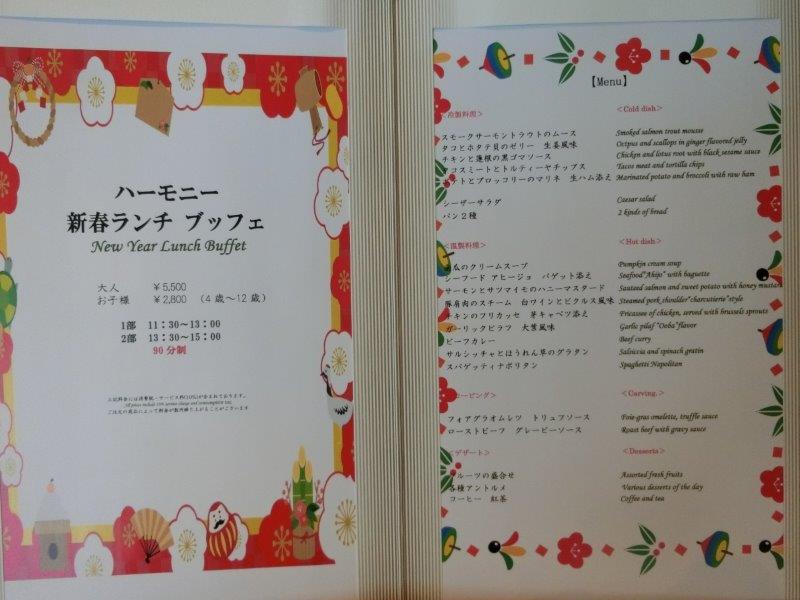 ハーモニー
新春ランチ ブッフェ
New Year Lunch Buffet
大人 ￥5,500
お子様 ￥2,800 （4歳～12歳）
1部 11：30～13：00
2部 13：30～15：00
90分制
上記料金には消費税・サービス料(10%)が含まれております。
All prices include 10% service charge and consumption tax.
【Menu】
＜冷製料理＞ ＜Cold dish＞
スモークサーモントラウトのムース Smoked salmon trout mousse
タコとホタテ貝のゼリー 生姜風味 Octpus and scallops in ginger flavored jelly
チキンと蓮根の黒ゴマソース Chicken and lotus root with black sesame sauce
コスミートとトルティーヤチップス Tacos meat and tortilla chips
テトとブロッコリーのマリネ 生ハム添え Marinated potato and broccoli with raw ham
シーザーサラダ Caesar salad
パン２種 2 kinds of bread
＜温製料理＞ ＜Hot dish＞
瓜のクリームスープ Pumpkin cream soup
シーフード アヒージョ バゲット添え Seafood"Ahijo" with baguette
サーモンとサツマイモのハニーマスタード Sauteed salmon and sweet potato with honey mustard
豚肩肉のスチーム 白ワインとピクルス風味 Steamed pork shoulder"charcutierie"style
チキンのフリカッセ 芽キャベツ添え Fricassee of chicken, served with brussels sprouts
ガーリックピラフ 大葉風味 Garlic pilaf "Ooba"flavor
ビーフカレー Beef curry
サルシッチャとほうれん草のグラタン Salsiccia and spinach gratin
スパゲッティナポリタン Spaghetti Napolitan
ービング＞ ＜Carving.＞
フォアグラオムレツ トリュフソース Foie-gras omelette, truffle sauce
ローストビーフ グレービーソース Roast beef with gravy sauce
＜デザート＞ ＜Desserts＞
フルーツの盛合せ Assorted fresh fruits
各種アントルメ Various desserts of the day
コーヒー 紅茶 Coffee and tea